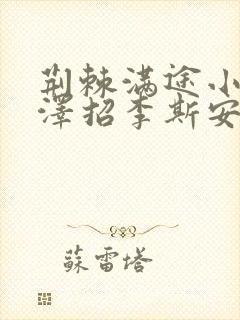 荆棘满途小
澤招李斯安
蘇雷塔